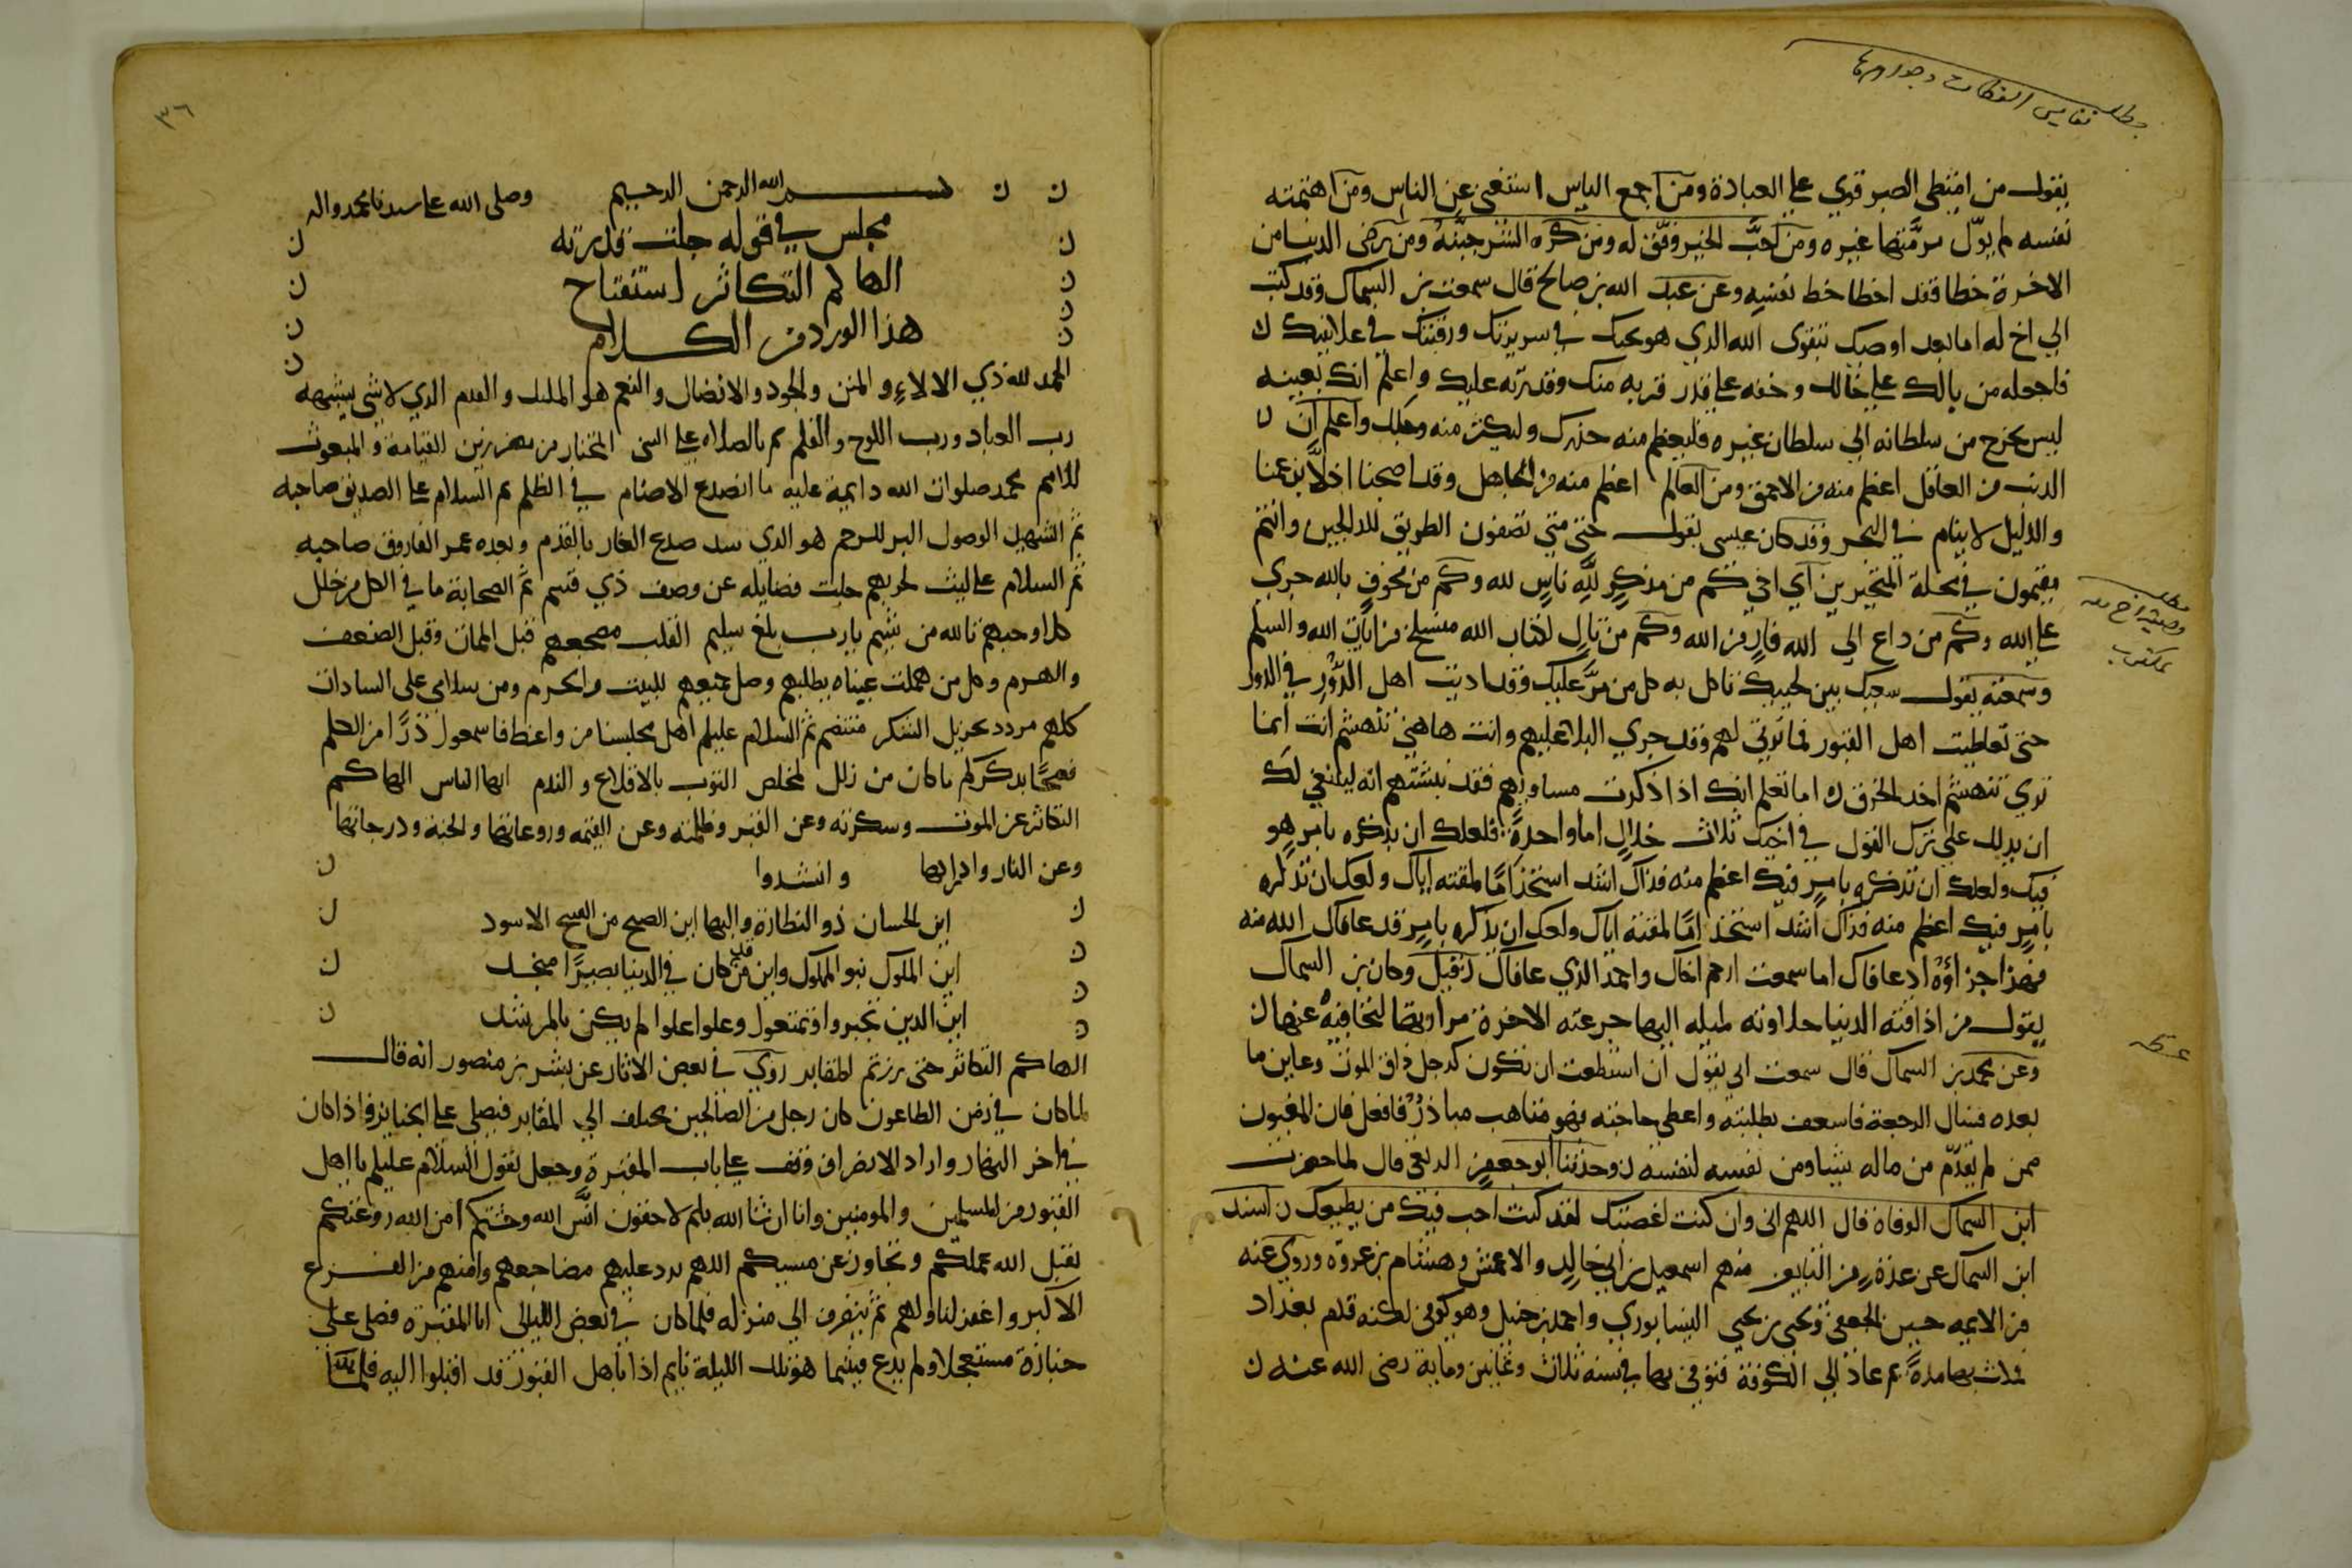 مطلب نفايس العظات وجواهرها
يقول من امتطى الصبر قوي على العبادة ومن اجمع الياس استغنى عن الناس ومن اهمته
نفسه لم يول مرمتها غيره ومن احب الخير وفق له ومن كره الشر جنبه ومن رضى الدنيا من
الاخرة حظا فقد اخطا حظ نفسه وعن عبد الله بن صالح قال سمعت بن السماك وقد كتب
الي اخ له اما بعد اوصيك بتقوى الله الذي هو نجيك في سريرتك ورقيبك في علانيتك ن
فاجعله من بالك على حالك وخفه على قدر قربه منك وقدرته عليك واعلم انك بعينه
ليس تخرج من سلطانه الي سلطان غيره فليعظم منه حذرك وليكثر منه وجلك واعلم ان ن
الذنب من العاقل اعظم منه من الاحمق ومن العالم اعظم منه من الجاهل وقد اصبحنا اذلاء بزعمنا
والدليل لا ينام في البحر وقد كان عيسى يقول حتى متى تصفون الطريق للدالجين وانتم
مقيمون في محلة المتحيرين اي اخي كم من مذكر لله ناس لله وكم من مخوف بالله جري
على الله وكم من داع الي الله فار من الله وكم من تال لكتاب الله منسلخ من ايات الله والسلم
مطلب وصية اخ له بمكتوب
وسمعته يقول سبعك بين لحييك تاكل به كل من مر عليك وقد اذيت اهل الدور في الدور
حتى تعاطيت اهل القبور فما ترثي لهم وقد جرى البلا عليهم وانت هاهنا تنهشهم انت انما
تري تنهشهم اخد الخرق ن اما تعلم انك اذا ذكرت مساويهم فقد نبشتهم انه لينبغي لك
ان يدلك على ترك القول في اخيك ثلاث خلال اما واحدة فلعلك ان تذكره بامر هو
فيك ولعلك ان تذكره بامر فيك اعظم منه فذاك اشد استحذاما لمقته اياك ولعلك ان تذكره
بامر فيك اعظم منه فذاك اشد استحذاما لمقته اياك ولعلك ان تذكره بامر قد عافاك الله منه
فهذا جزاؤه اذ عافاك اما سمعت ارحم اخاك واحمد الذي عافاك ن قيل وكان بن السماك
يقول من اذاقته الدنيا حلاوته لميله اليها جرعته الاخرة مرارتها لتجافيه عنها ن
عظه
وعن محمد بن السماك قال سمعت ابي يقول ان استطعت ان تكون كرجل ذاق الموت وعاين ما
بعده فسال الرجعة فاسعف بطلبته واعطي حاجته فهو متاهب مبادر فافعل فان المغبون
من لم يقدم من ماله شيئا ومن نفسه لنفسه ن وحدثنا ابو جعفر الربعي قال لما حضرت
ابن السماك الوفاة قال اللهم اني وان كنت اعصيك لقد كنت احب فيك من يطيعك ن اسند
ابن السماك عن عدة من التابعين منهم اسمعيل بن ابي خالد والاعمش وهشام بن عروة وروى عنه
من الايمه حسين الجعفي ويحيى بن يحيى النيسابوري واحمد بن حنبل وهو كوفي لكنه قدم بغداد
فمكث بها مدة ثم عاد الي الكوفة فتوفي بها في سنة ثلاث وثمانين وماية رضى الله عنه ن
٣٦
بسم الله الرحمن الرحيم وصلى الله على سيدنا محمد واله
مجلس في قوله جلت قدرته
الهاكم التكاثر استفتاح
هذا الورد من الكلام
الحمد لله ذي الالاء والمنن والجود والافضال والنعم هو الملك والقدم الذي لا شي يشبهه
رب العباد ورب اللوح والقلم ثم بالصلاه على النبى المختار من مضر زين القيامة والمبعوث
للامم محمد صلوات الله دايمة عليه ما انصدع الاصنام في الظلم ثم السلام على الصديق صاحبه
ثم الشهيد الوصول البر للرحم هو الذي سد صدع الغار بالقدم وبعده عمر الفاروق صاحبه
ثم السلام على ليث لحربهم جلت فضايله عن وصف ذي قسم ثم الصحابة ما في الكل من خلل
كل اوحبهم تالله من شيم يا رب بلغ سليم القلب مضجعهم قبل الممات وقبل الضعف
والهرم وكل من هملت عيناه يطلبهم وصل جميعهم للبيت والحرم ومن سلامي على السادات
كلهم مردد بجزيل الشكر منتضم ثم السلام عليكم اهل مجلسنا من واعظ فاسمعوا دررا من الحكم
نصحا بذكركم ما كان من زلل لمخلص التوب بالاقلاع والندم ايها الناس الهاكم
التكاثر عن الموت وسكرته وعن القبر وظلمته وعن القيمه وروعاتها والجنة ودرجاتها
وعن النار وادراكها وانشدوا
اين الحسان ذو النظارة والبها اين الصبح من القبيح الاسود
اين الملوك بنو الملوك واين من قد كان في الدنيا بصيرا منجد
اين الذين تجبروا وتمتعوا وعلوا علوا لم يكن بالمرشد
الهاكم التكاثر حتى زرتم المقابر روي في بعض الاثار عن بشر بن منصور انه قال
لما كان في زمن الطاعون كان رجل من الصالحين يختلف الي المقابر فيصلي على الجنايز فاذا كان
في اخر النهار واراد الانصراف وقف على باب المقبرة وجعل يقول السلام عليكم يا اهل
القبور من المسلمين والمومنين وانا ان شا الله بكم لاحقون انس الله وحشتكم امن الله روعتكم
تقبل الله عملكم وتجاوز عن مسيكم اللهم برد عليهم مضاجعهم وامنهم من الفزع
الاكبر واغفر لنا ولهم ثم ينصرف الي منزله فلما كان في بعض الليالي اتا المقبرة فصلى على
جنازة مستعجلا ولم يدع فبينما هو تلك الليلة نايم اذا باهل القبور قد اقبلوا اليه فلما